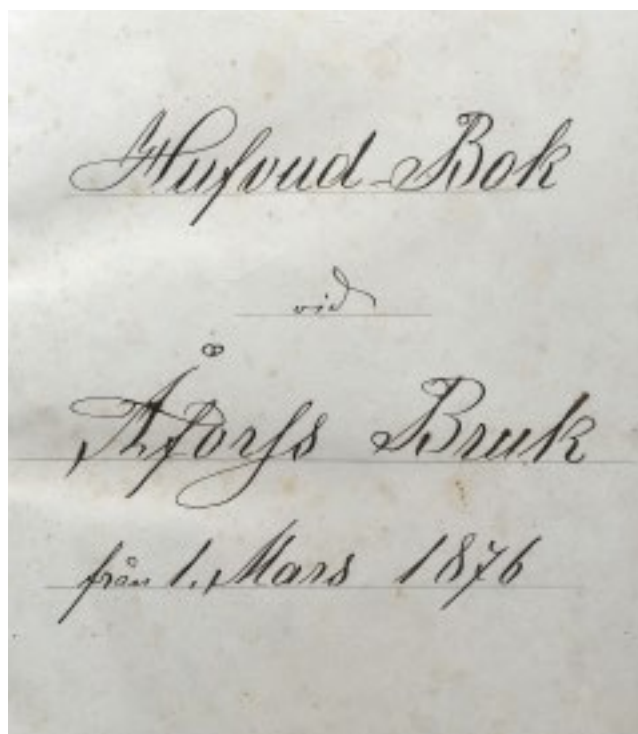 Hufvud-Bok
vid
Åforss Bruk
från 1. Mars 1876